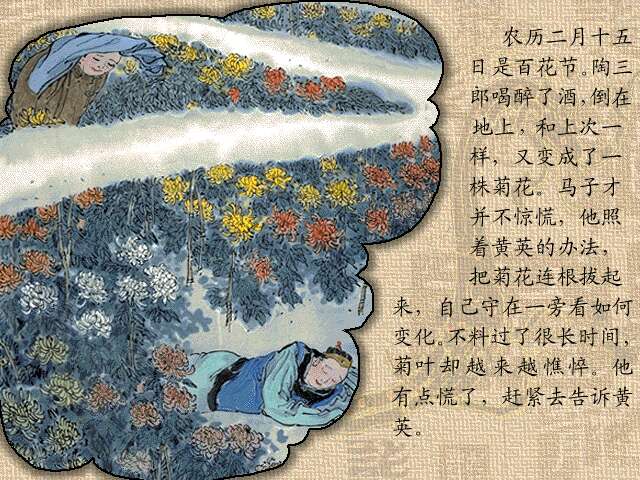 农历二月十五
日是百花节。陶三
郎喝醉了酒,倒在
地上，和上次一
样，又变成了一
株菊花。马子才
并不惊慌，他照
着黄英的办法，
把菊花连根拔起
来，自己守在一旁看如何
变化。不料过了很长时间，
菊叶却越来越憔悴。他
有点慌了，赶紧去告诉黄
英。